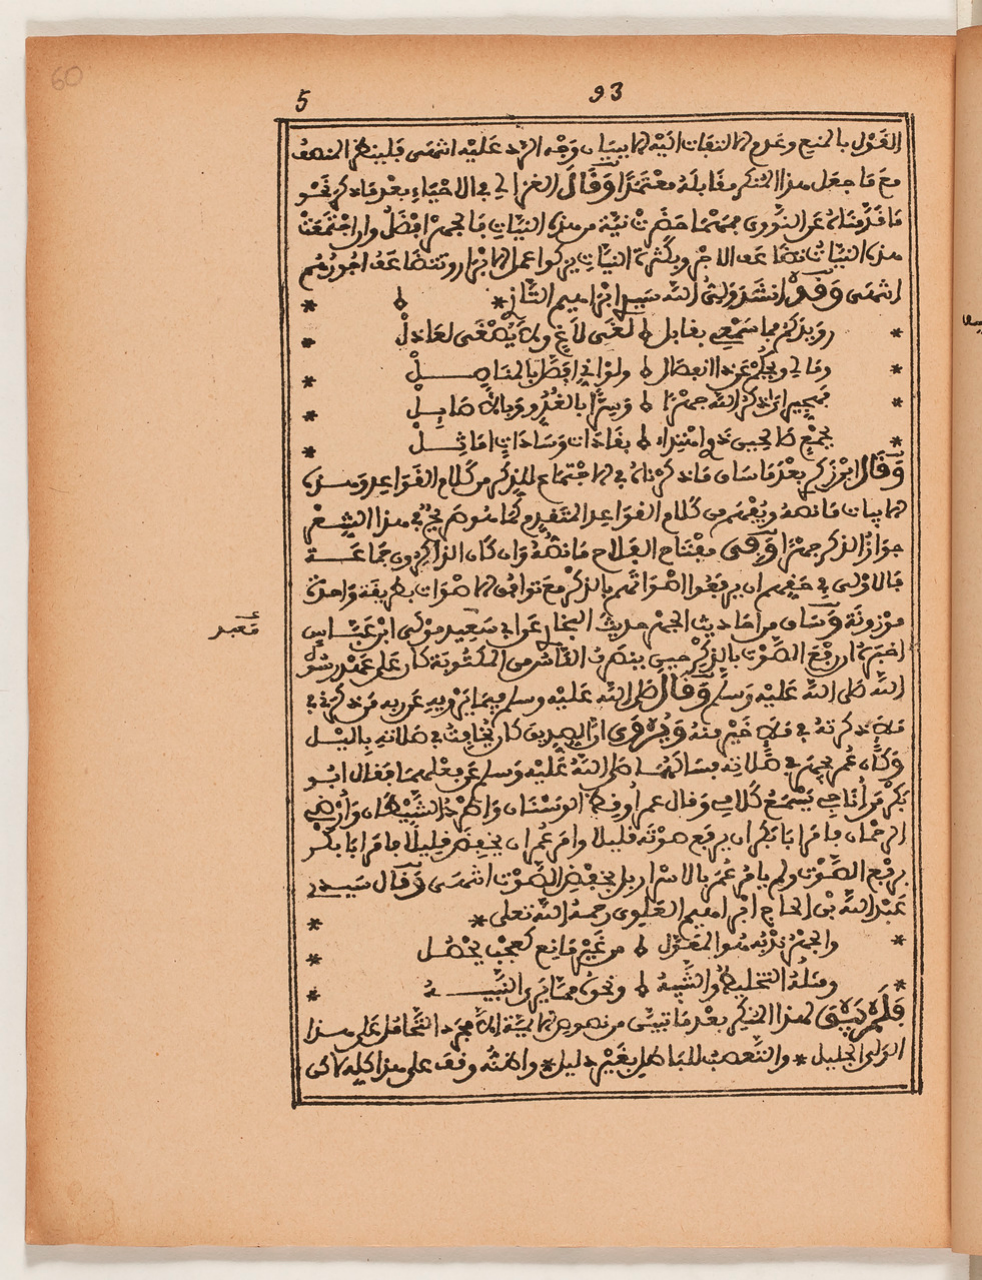 60
5 93
القول بالمنع وعدم الالتفات اليه الا ببيان وجه الرد عليه انتهى فلينظر المنصف
مع ما جعل هذا المنكر مقابله معتمدا وقال الغزالي في الاحياء بعد ما ذكر نحو
ما قدمناه عن النووي فمهما حضرت نية من هذه النيات فالجهر افضل وان اجتمعت
هذه النيات تضاعف الاجر وبكثرة النيات يزكوا عمل الابرار وتتضاعف اجورهم
انتهى وقد انشد ولي الله سيدي ابراهيم التازي * *
* رويدكم فما سمعي بقابل لغى لاغ ولا يصغى لعاذل *
* وما لي ويحكم عن ذا انفصال ولو اني اقطع بالمناصل *
* فهجيراي ذكر الله جهرا وسرا بالغدو وبالاصايل *
* بجمع صالحين ذوي اهتداء بقادات وسادات اماثل *
وقال ابو زكري بعد ما ساق ما ذكرناه في الاجتماع للذكر من كلام القواعد وهذه
الابيات ما نصه ويفهم من كلام القواعد المتقدم كما هو صريح في هذا الشعر
جواز الذكر جهرا وفي مفتاح الفلاح ما نصه وان كان الذاكرون جماعة
فالاولى في حقهم ان يرفعوا اصواتهم بالذكر مع توافق الاصوات بطريقة واحدة
موزونة وساق من احاديث الجهر حديث البخاري عن ابي سعيد مولى ابن عباس
معبد
اخبره ان رفع الصوت بالذكر حين ينصرف الناس من المكتوبة كان على عهد رسول
الله صلى الله عليه وسلم وقال صلى الله عليه وسلم فيما يرويه عن ربه من ذكرني في
ملإ ذكرته في ملإ خير منه ويروى ان الصديق كان يخافت في صلاته بالليل
وكان عمر يجهر في صلاته فسالهما صلى الله عليه وسلم عن فعلهما فقال ابو
بكر من اناجي يسمع كلامي وقال عمر اوقظ الوسنان واطرد الشيطان وارضي
الرحمان فامر ابا بكر ان يرفع صوته قليلا وامر عمر ان يخفض قليلا فامر ابا بكر
برفع الصوت ولم يامر عمر بالاسرار بل بخفض الصوت انتهى وقال سيدي
عبد الله بن الحاج ابراهيم العلوي رحمه الله تعلى * *
* والجهر ندبه هو المعول من غير مانع كعجب يحصل *
* ومثله التخليط والتشويه ونحو مما يرى النبيه *
فلم يبق لهذا المنكر بعد ما تبين من نصوص الايمة الا مجرد التحامل على هذا
الولي الجليل * والتعصب للباطل بغير دليل * واظنه وقف على هذا كله لاكن